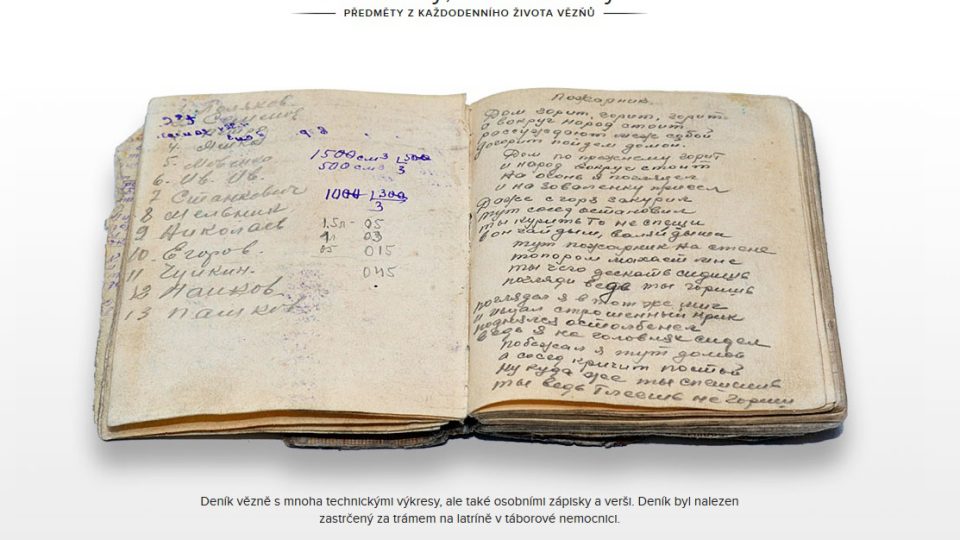 PŘEDMĚTY Z KAŽDODENNÍHO ŽIVOTA VĚZŇŮ
1. Поляков
235
4. Яшка
5. Мовенко
6. Ив. Ив.
7 Станкевич
8 Мельник
9 Николаев
10. Егоров.
11 Чуйкин.
12 Панков
13 Пашков
1500 см3 500
500 см3 3
1000 300
3
1.5л - 05
1л 03
05 015
045
Пожарник.
Дом горит, горит, горит
а вокруг народ стоит
рассуждают меж собой
догорит пойдем домой.
Дом по прежнему горит
и народ вокруг стоит
на огонь я поглядел
и на заваленку присел
Даже с горя закурил
тут сосед остановил
ты курить то не спеши
вон чай дым, валяй дыши
тут пожарник на стене
топором махает мне
ты чего дескать сидишь
погляди ведь ты горишь
поглядел я в тот же миг
и издал страшенный крик
поднялся остолбенел
ведь я на головнях сидел
побежал я тут домов
а сосед кричит постой
ну куда же ты спешишь
ты ведь тлеешь не горишь
Deník vězně s mnoha technickými výkresy, ale také osobními zápisky a verši. Deník byl nalezen
zastrčený za trámem na latríně v táborové nemocnici.